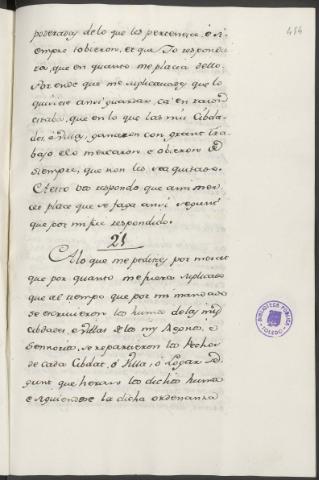 454
poderadas de lo que les pertenecia, è si
empre tobieron, et que Yo responde
ria, que en quanto me placia dello.
Por ende que me suplicavades que lo
quisiese ansi guardar, ca en razon
estaba, que en lo que las mis Cibda-
des, è Villas, ganaron con grant tra
bajo, è lo mercaron, è obieron de
siempre, que non les sea quitado.
A esto vos respondo que a mi mer-
ced place que se faga ansi segunt
que por mi fue respondido.
21
A lo que me pedistes por merced
que por quanto me fuera suplicado
que al tiempo que por mi mandado
se escrivieron los humos de las mis
cibdades, è villas de los mis Regnos, è
Señorios, se repartieron los Pechos
de cada Cibdat, è Villa, è Logar se-
gunt que heran los dichos humos
è siguiendose la dicha ordenanza
BIBLIOTECA PUBLICA
TOLEDO